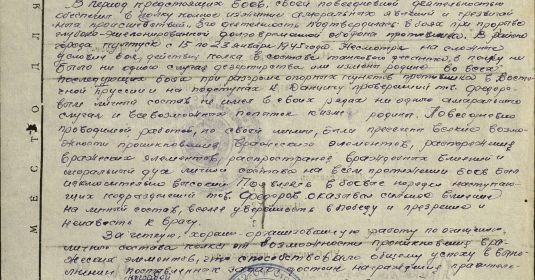 В период предстоящих боев, своей повседневной деятельностью
обеспечил в полку полное изжитие аморальных явлений и
происшествий. Его деятельность подтвердилась в боях при прорыве
глубоко-эшелонированной долговременной обороны противника. В районе
города Пултуск с 15 по 23 января 1945 года. Несмотря на сложные
условия боя, действия полка в составе танкового десанта, в полку не
было ни одного случая дезертирства или измены родине. Во всех
последующих боях при разгроме опорных пунктов противника в Восточ
ной Пруссии и на подступах к Данцигу проверенный тов. Федоро-
вым личный состав не имел в своих рядах ни одного аморального
случая и всевозможных попыток измены родине. Повседневно
проводимой работой, по своей линии, были пресечены всякие возмо-
жности проникновения вражеского элементов,
вражеских элементов, распространение враждебных влияний и
моральный дух личного состава на всем протяжении боев был
исключительно высокий. Появляясь в боевых порядках наступаю-
щих подразделений тов. Федоров оказывал сильное влияние
на личный состав, вселяя уверенность в победу и презрение и
ненависть к врагу.
За четкую, хорошо-организованную работу по очищению
личного состава полка от возможности проникновения вра-
жеских элементов, что способствовало общему успеху в выпол-
нении поставленных задач достоин награждения правитель-
МЕСТО ДЛЯ